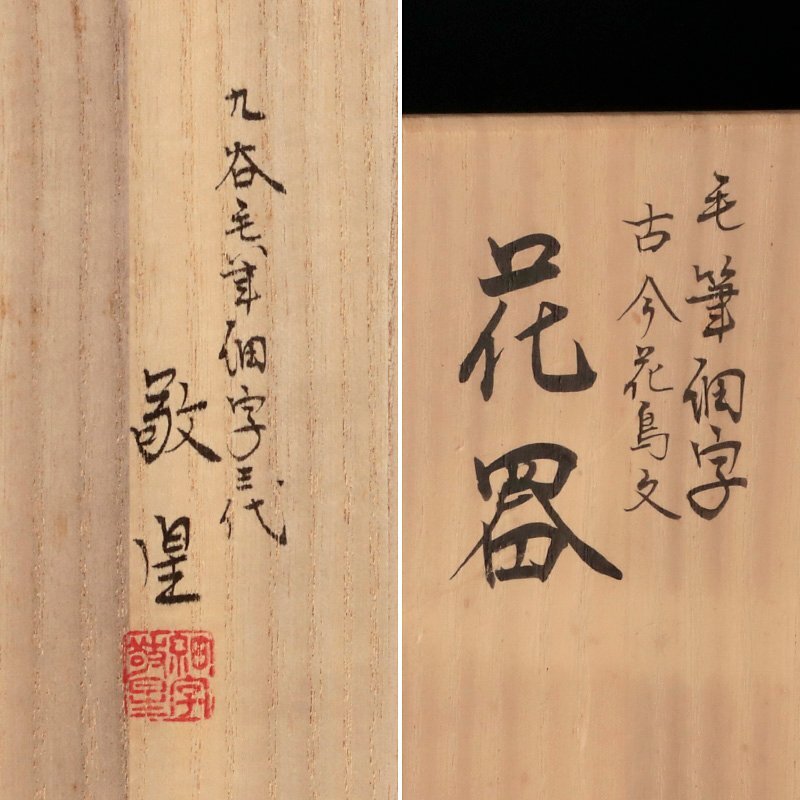 九谷毛筆細字三代
敬星
細字
敬星
毛筆細字
古今花鳥文
花器